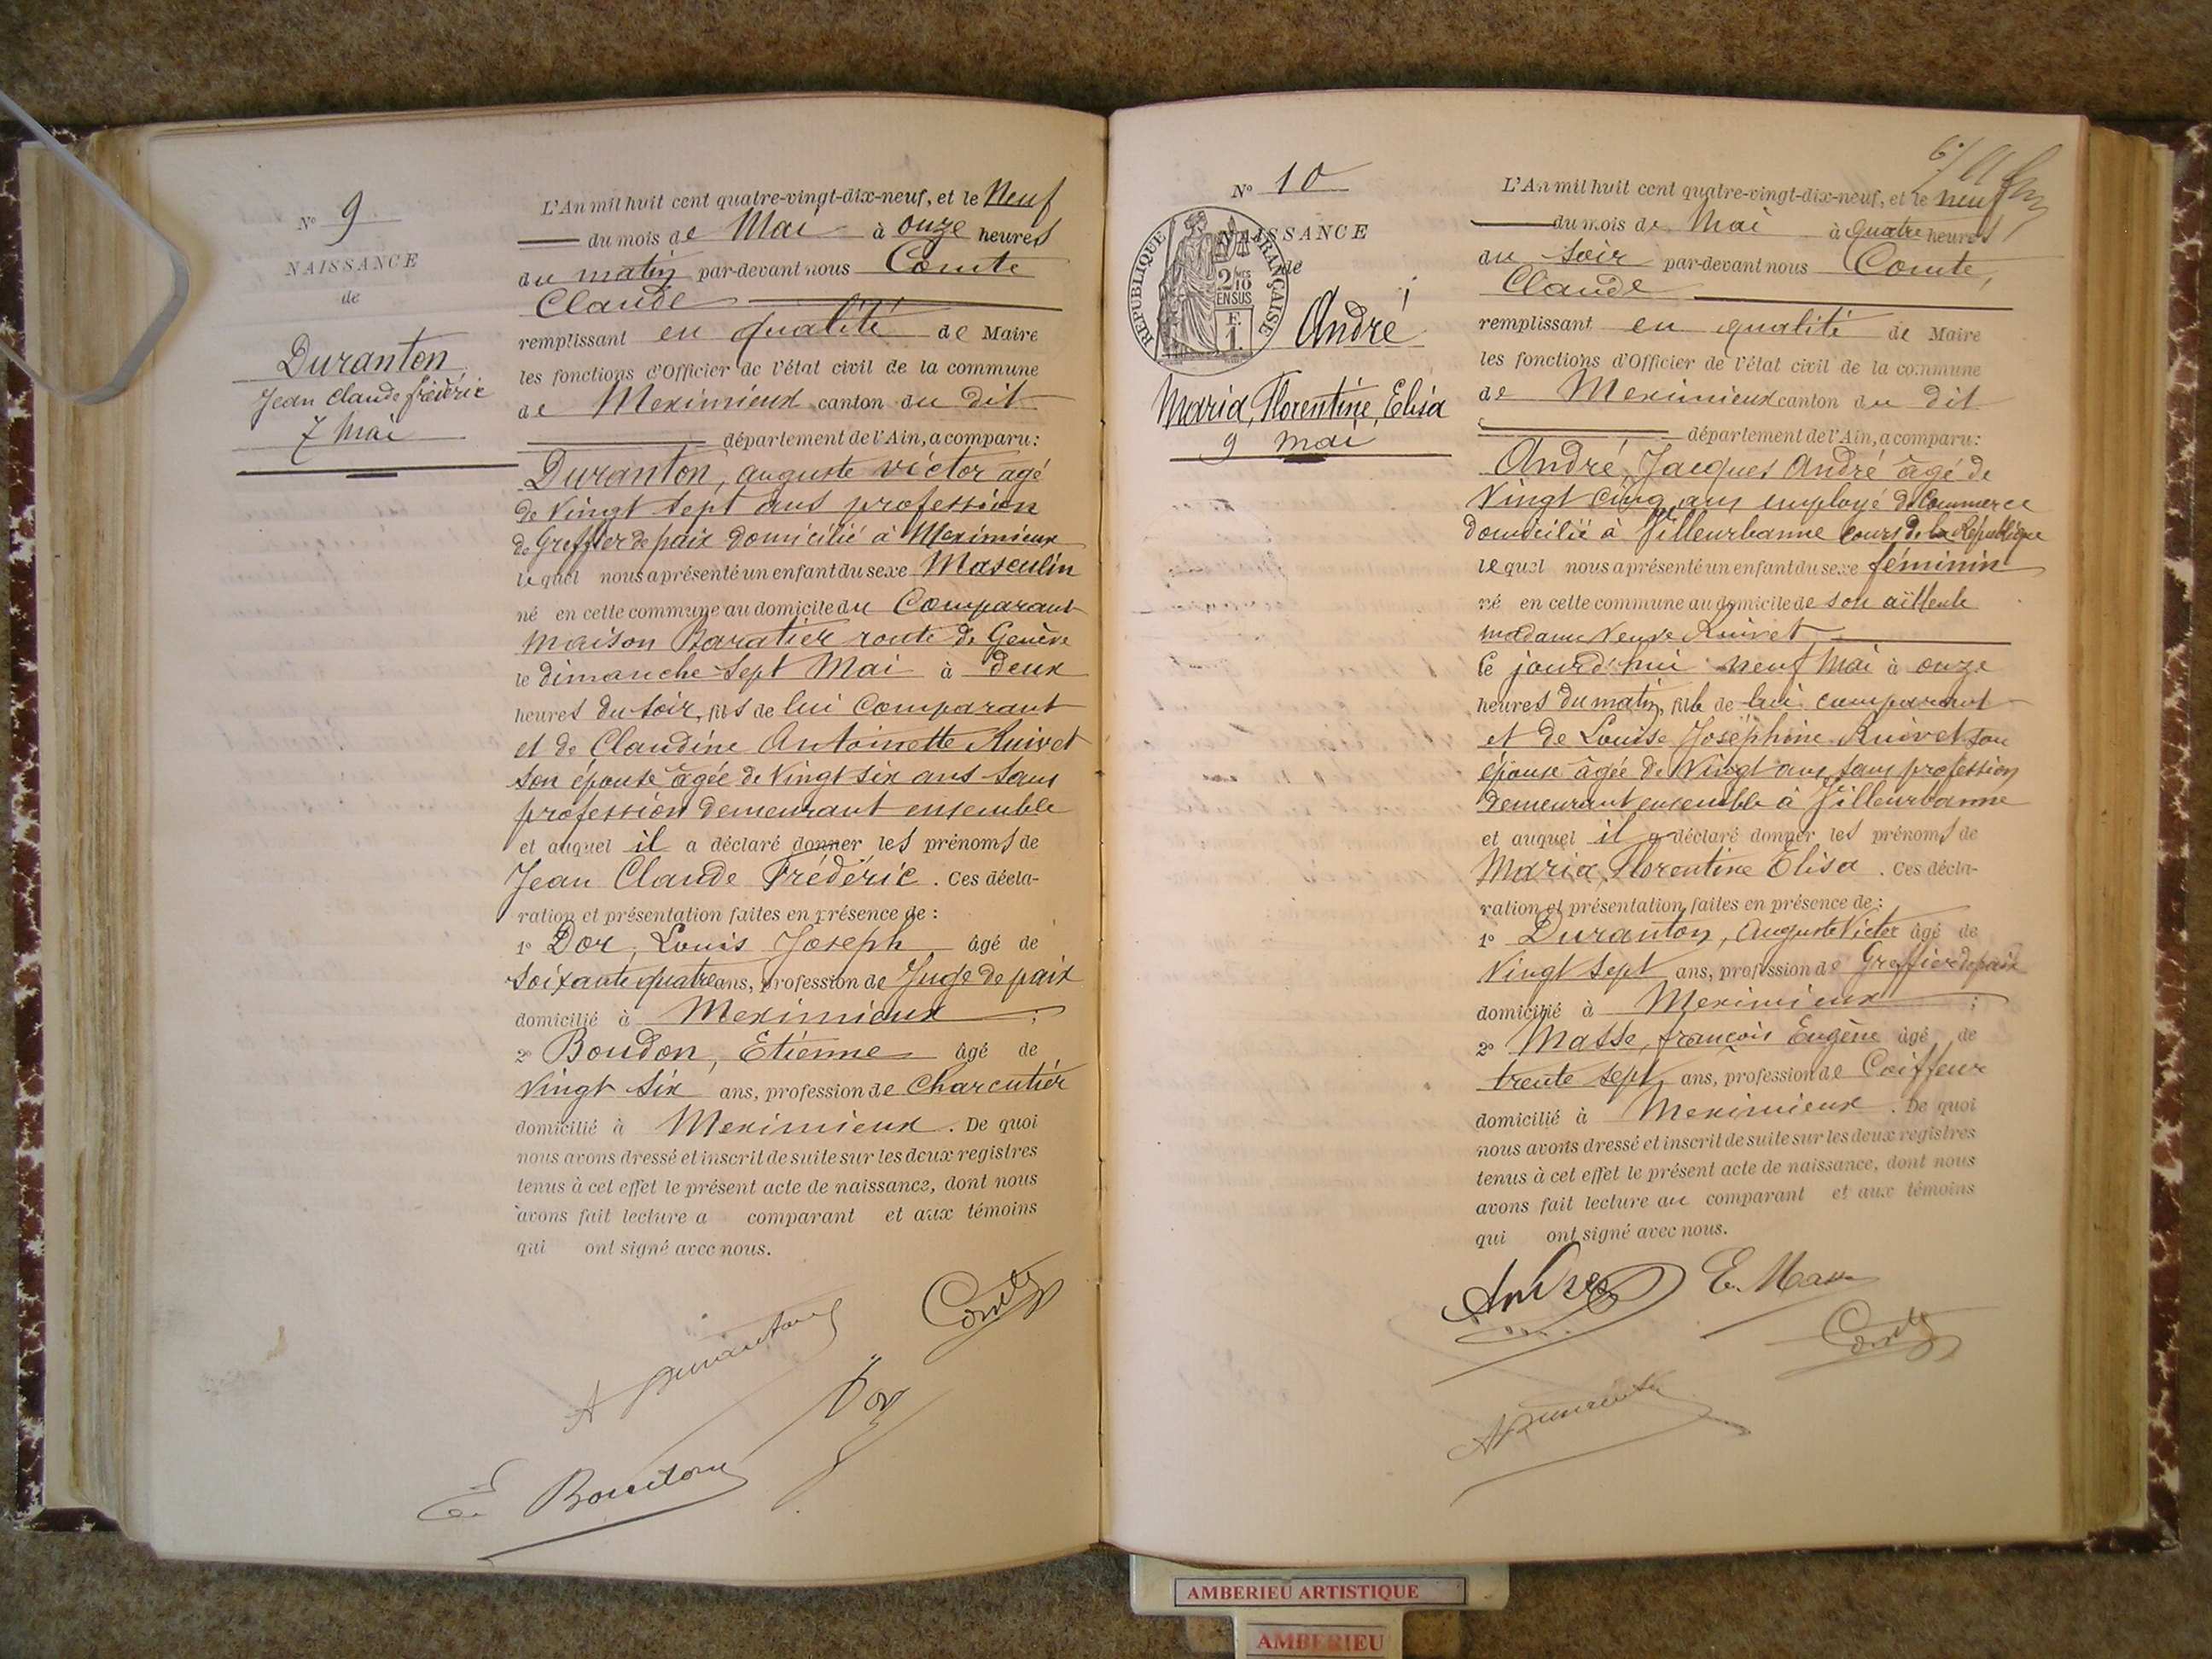 N° 9
NAISSANCE
de
Duranton
Jean Claude frédéric
7 Mai
L'An mil huit cent quatre-vingt-dix-neuf, et le Neuf
du mois de Mai à onze heures
du matin par-devant nous Comte
Claude
remplissant en qualité de Maire
les fonctions d'Officier de l'état civil de la commune
de Meximieux canton du dit
département de l'Ain, a comparu:
Duranton, auguste victor agé
de Vingt sept ans profession
de Greffier de paix domicilié à Meximieux
lequel nous a présenté un enfant du sexe Masculin
né en cette commune au domicile du Comparant
Maison Baratier route de Genève
le dimanche sept Mai à deux
heures du soir, fils de lui Comparant
et de Claudine Antoinette Ruivet
son épouse âgée de Vingt six ans sans
profession demeurant ensemble
et auquel il a déclaré donner les prénoms de
Jean Claude Frédéric. Ces décla-
ration et présentation faites en présence de :
1° Dor, Louis Joseph âgé de
soixante quatre ans, profession de Juge de paix
domicilié à Meximieux ;
2° Boudon, Etienne âgé de
Vingt six ans, profession de Charcutier
domicilié à Meximieux. De quoi
nous avons dressé et inscrit de suite sur les deux registres
tenus à cet effet le présent acte de naissance, dont nous
avons fait lecture a comparant et aux témoins
qui ont signé avec nous.
A Duranton
Comte
Dor
E. Boudon
N° 10
NAISSANCE
de
RÉPUBLIQUE FRANÇAISE
2/10 EN SUS
F. 1.
André
Maria, Florentine, Elisa
9 mai
L'An mil huit cent quatre-vingt-dix-neuf, et le neuf
du mois de Mai à quatre heures
du soir par-devant nous Comte,
Claude
remplissant en qualité de Maire
les fonctions d'Officier de l'état civil de la commune
de Meximieux canton du dit
département de l'Ain, a comparu:
André, Jacques André âgé de
Vingt cinq ans employé de Commerce
domicilié à Villeurbanne Cours de la République
lequel nous a présenté un enfant du sexe féminin
né en cette commune au domicile de son aïlleule
madame Veuve Ruivet
Ce jourd'hui neuf Mai à onze
heures du matin, fille de lui comparant
et de Louise Joséphine Ruivet son
épouse âgée de Vingt ans, sans profession
demeurant ensemble à Villeurbanne
et auquel il a déclaré donner les prénoms de
Maria, Florentine Elisa. Ces décla-
ration et présentation faites en présence de :
1° Duranton, Auguste Victor âgé de
Vingt sept ans, profession de Greffier de paix
domicilié à Meximieux ;
2° Masse, françois Eugène âgé de
trente sept ans, profession de Coiffeur
domicilié à Meximieux. De quoi
nous avons dressé et inscrit de suite sur les deux registres
tenus à cet effet le présent acte de naissance, dont nous
avons fait lecture au comparant et aux témoins
qui ont signé avec nous.
André
E. Masse
Comte
A Duranton
AMBERIEU ARTISTIQUE
AMBERIEU